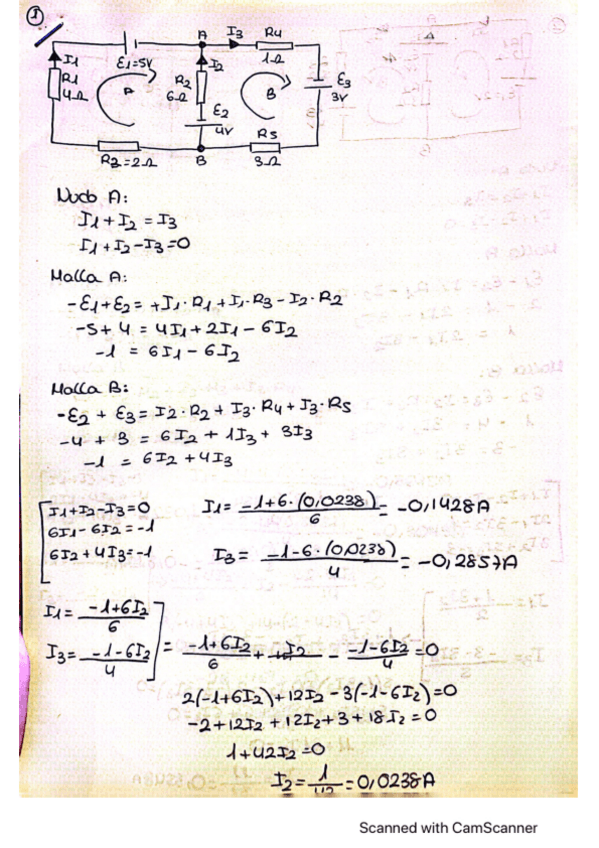 1
A
I3
R4
1Ω
I1
E1=5V
I2
R1
4Ω
A
R2
6Ω
B
E3
3V
E2
4V
R5
R3=2Ω
B
3Ω
Nudo A:
I1+I2=I3
I1+I2-I3=0
Malla A:
-E1+E2=+I1·R1+I1·R3-I2·R2
-5+4=4I1+2I1-6I2
-1=6I1-6I2
Malla B:
-E2+E3=I2·R2+I3·R4+I3·R5
-4+3=6I2+1I3+3I3
-1=6I2+4I3
I1+I2-I3=0
6I1-6I2=-1
6I2+4I3=-1
I1=-1+6·(0,0238)/6=-0,1428A
I3=-1-6·(0,0238)/4=-0,2857A
I1=-1+6I2/6
I3=-1-6I2/4
=-1+6I2/6+I2--1-6I2/4=0
2(-1+6I2)+12I2-3(-1-6I2)=0
-2+12I2+12I2+3+18I2=0
1+42I2=0
I2=1/42=0,0238A
Scanned with CamScanner